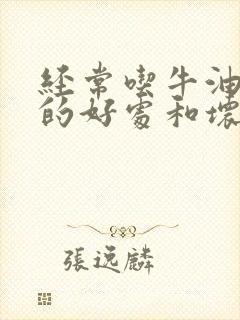 经常喫牛油
的好處和壞
張逸麟